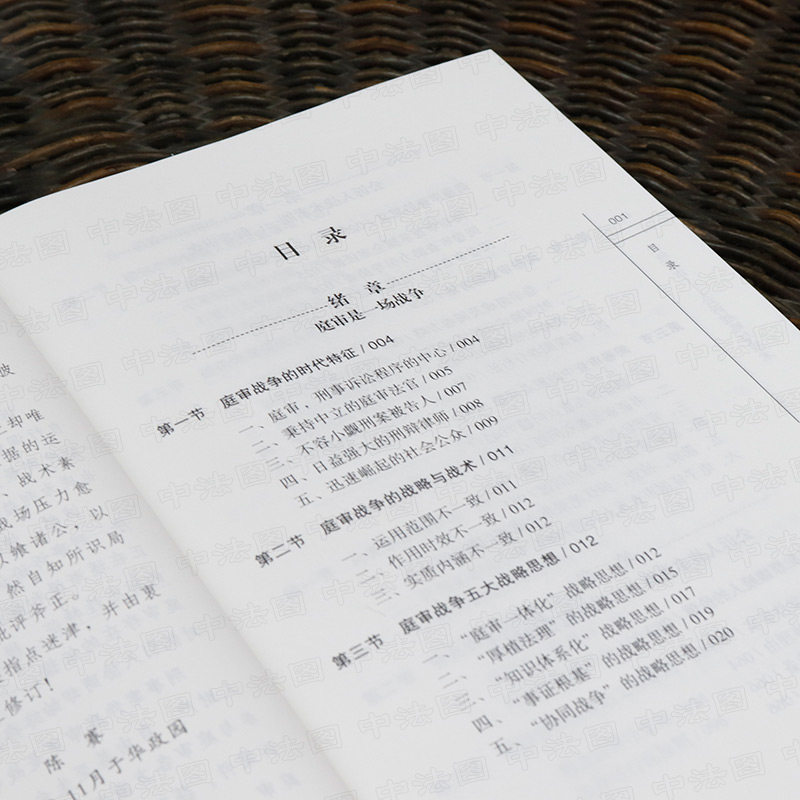 彼
却唯
据的运
、战术素
战场压力愈
以飨诸公，以
然自知所识局
批评斧正。
指点迷津，并由衷
修订！
陈赛
11月于华政园
001
目录
目录
绪章
庭审是一场战争
第一节 庭审战争的时代特征 / 004
一、庭审，刑事诉讼程序的中心 / 004
二、秉持中立的庭审法官 / 005
三、不容小觑刑案被告人 / 007
四、日益强大的刑辩律师 / 008
五、迅速崛起的社会公众 / 009
第二节 庭审战争的战略与战术 / 011
一、运用范围不一致 / 011
二、作用时效不一致 / 012
三、实质内涵不一致 / 012
第三节 庭审战争五大战略思想 / 012
一、“庭审一体化”战略思想 / 012
二、“厚植法理”的战略思想 / 015
三、“知识体系化”战略思想 / 017
四、“事证根基”的战略思想 / 019
五、“协同战争”的战略思想 / 020
中法图